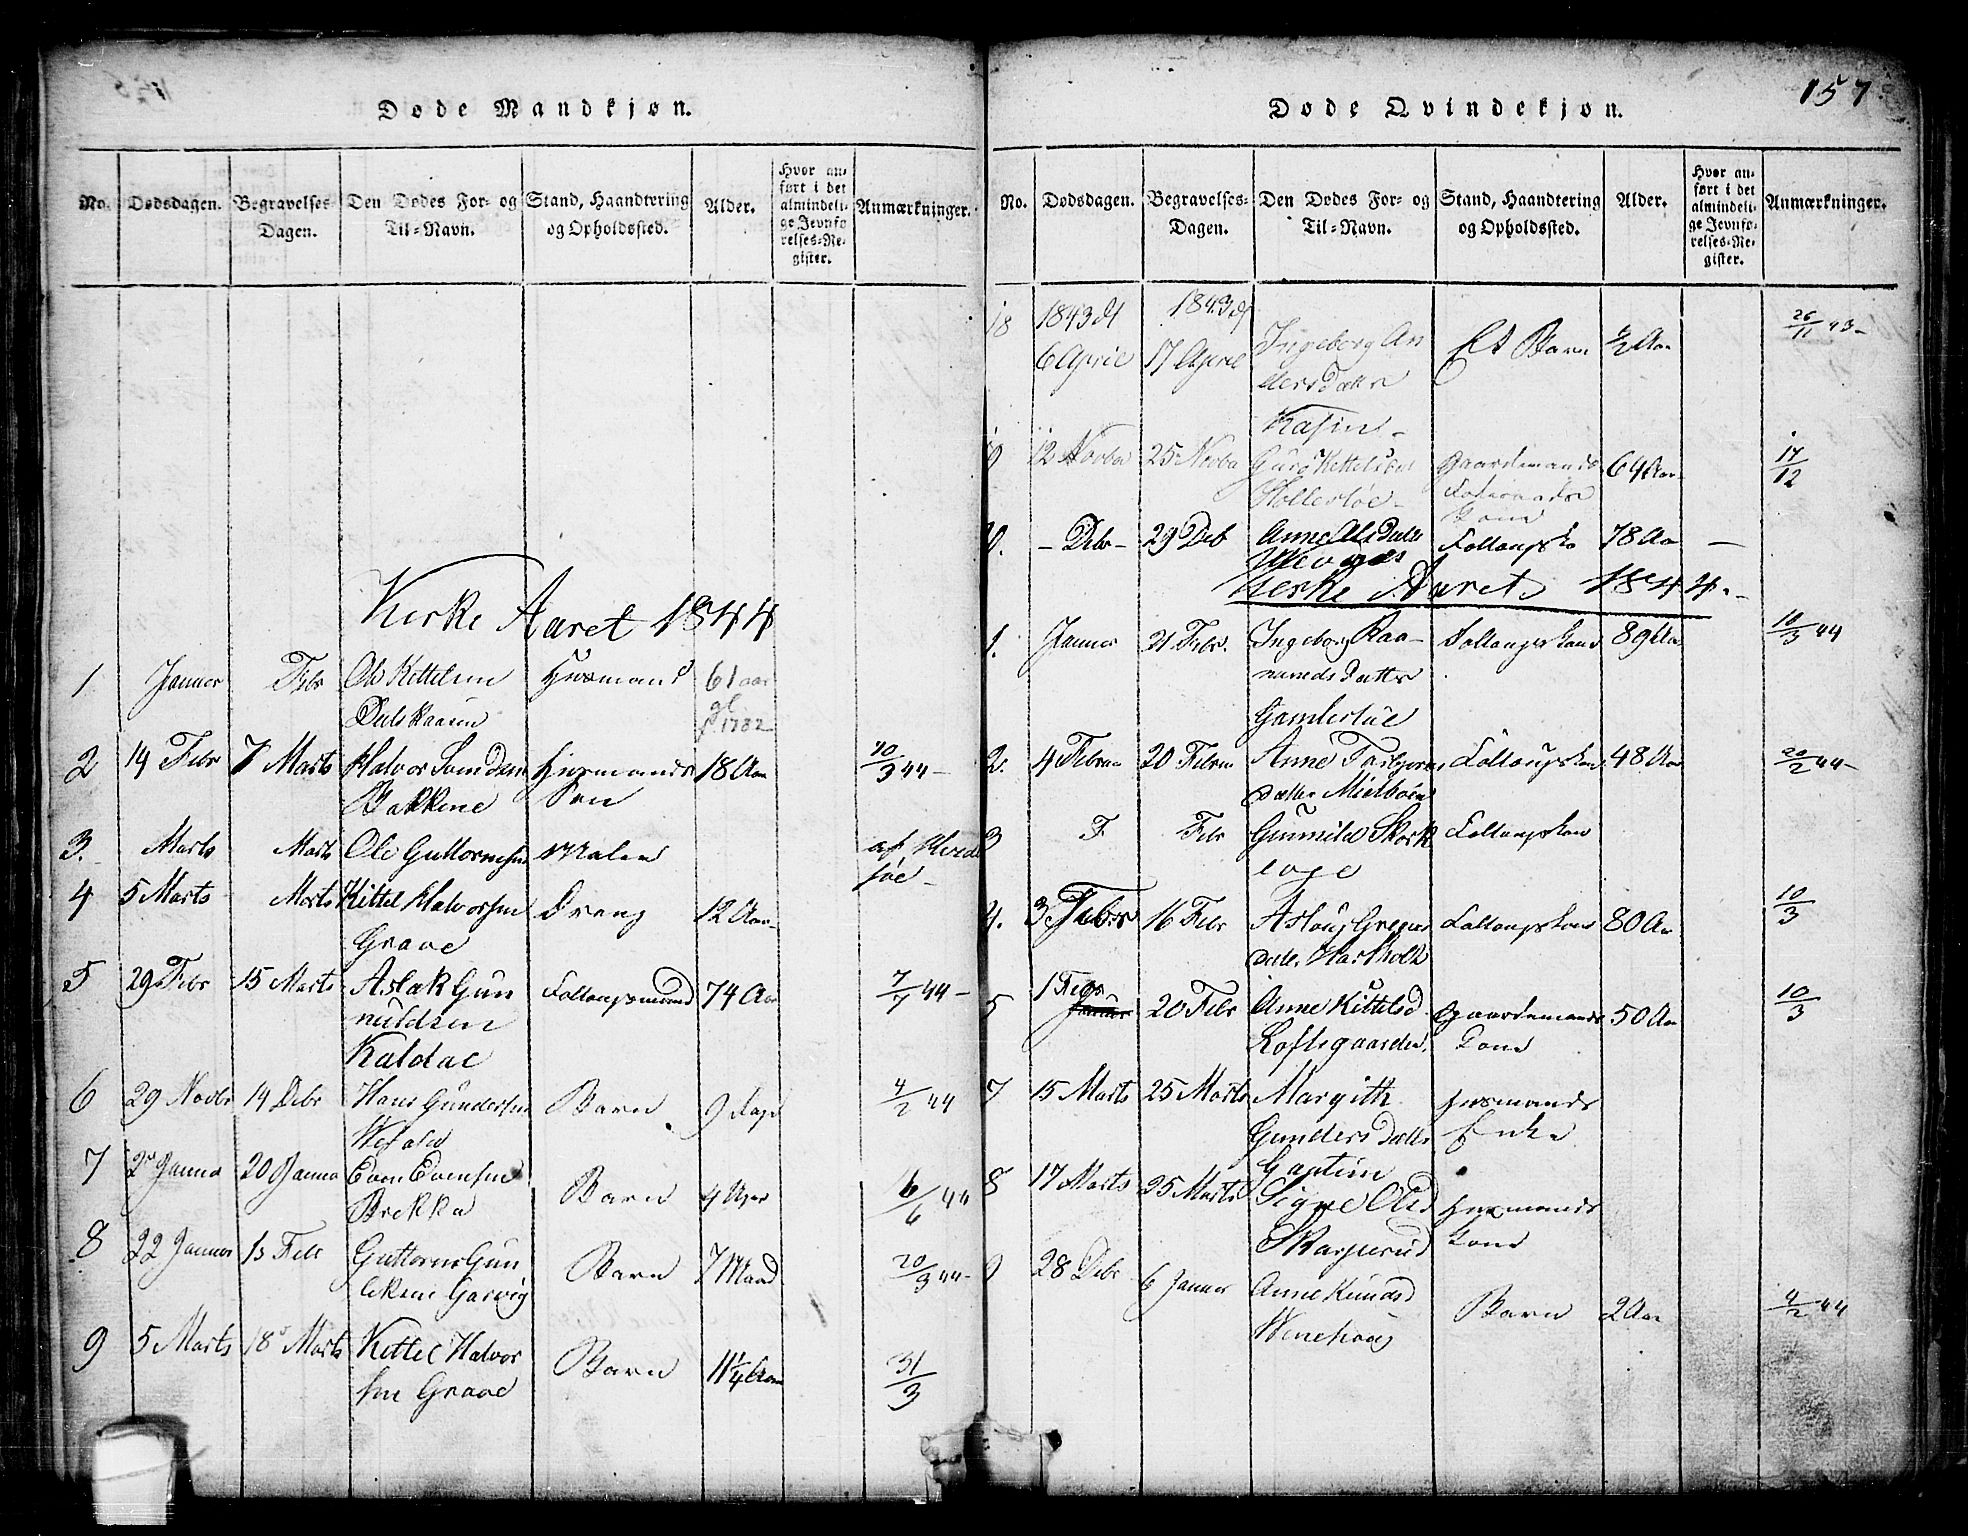 157
Døde Mandkjøn.
No. Dødsdagen. Begravelses-Dagen. Den Dødes For- og Til-Navn. Stand, Haandtering og Opholdssted. Alder. Hvor anført i det almindelige Jevnførelses-Register. Anmærkninger.
Kirke Aaret 1844
1 Januar Febr Ole Kittelsen Husmand 61 aar
gl.
f. 1782
2 14 Febr 7 Marts Halvor Husmands 18 Aar 10/3 44-
Bakkene Søn
3. Marts Marts Ole Guttormsen af
4 5 Marts Marts Kittel Halvorsen Dreng 12 Aar
Grave
5 29 Febr 15 Marts Aslak Gun Follaugsmand 74 Aar 7/7 44-
nuldsen
Kaldal
6 29 Novbr 14 Debr Hans Gundersen Barn 9 Dage 4/2 44
7 2 Janua 20 Janua Even Evensen Barn 4 Uger 6/6 44
Brekka
8 22 Januar 13 Febr Guttorm Gun Barn 7 Maad 20/3 44-
leksen Garvig
9 5 Marts 18 Marts Kittel Halvor Barn 11 1/4 Aar 31/3
sen Grave
Døde Qvindekjøn.
No. Dødsdagen. Begravelses-Dagen. Den Dødes For- og Til-Navn. Stand, Haandtering og Opholdssted. Alder. Hvor anført i det almindelige Jevnførelses-Register. Anmærkninger.
18 1843 d 1843 d 26/11 43-
6 April 17 April Ingeborg An Et Barn 1/2 Aar
dersdatter
Kasin-
9 12 Novbr 25 Novbr Guro Kittelsdat Gaardmands 64 Aar 17/12
Kone
0. - Debr- 29 Deb Anne Olsdatter 78 Aar -
Kirke Aaret 1844.-
1. Januar 21 Febr. Ingeborg Raa- 89 Aar 10/3 44
mundsdatter
Gamlestøe
2. 4 Februa 20 Februa Anne Torbjørns 48 Aar 20/2 44-
datter
3 F Febr Gunnild Skork
loge
4. 3 Febr 16 Febr Aslaug Gregers 80 Aar 10/3
datter
5 1 Febr Januar 20 Febr Anne Kittelsd Gaardmands 50 Aar 10/3
Loftsgaarden. Kone
7 15 Marts 25 Marts Margith Husmands
Gundersdatter Enke
8 17 Marts 25 Marts Signe Olsd Husmands
Kone
9 28 Debr 6 Januar Anne Knudsd Barn 2 Aar 4/2 44